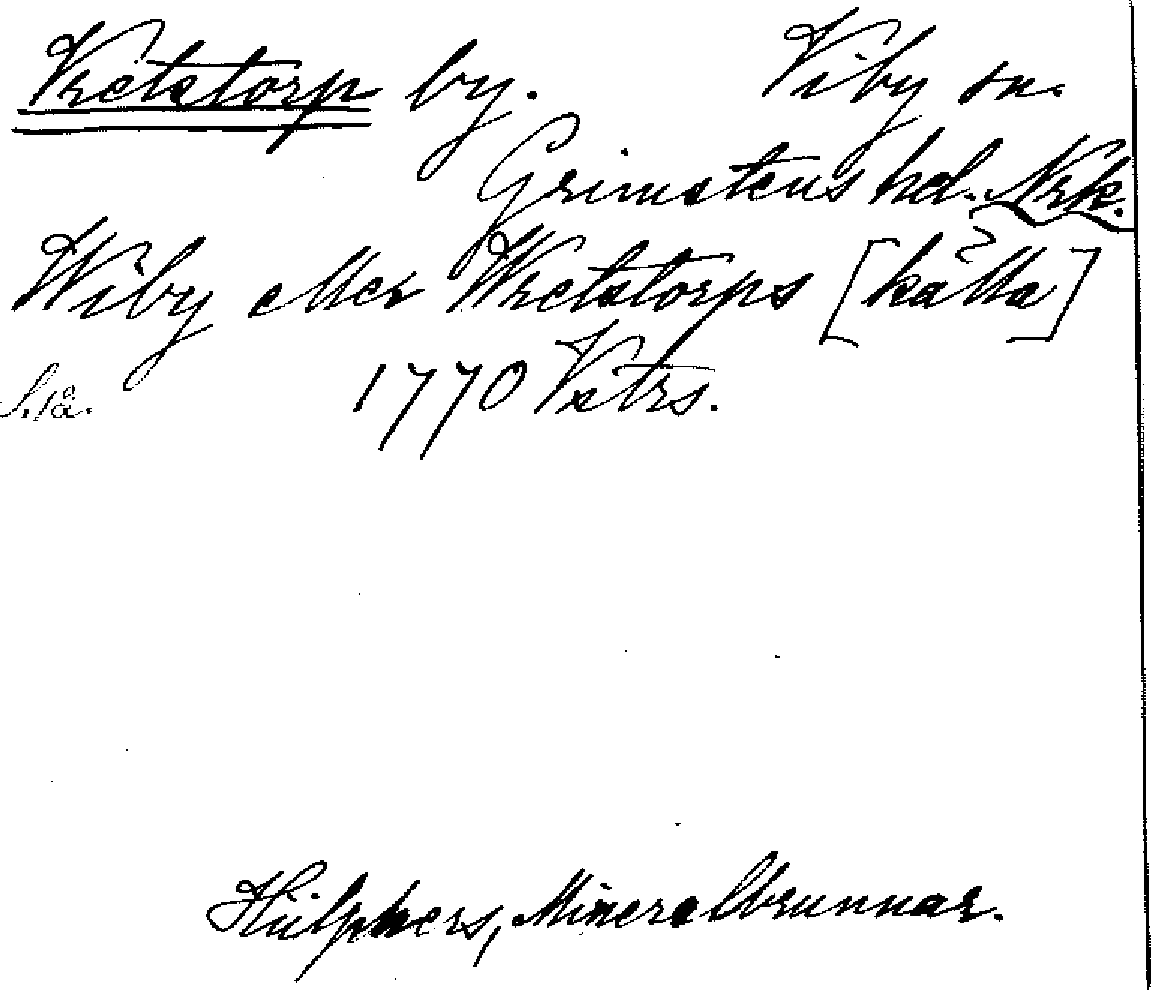 Vretstorp by. Viby sn.
Grimstens hd. Nrk.
Wiby eller Wretstorps [källa]
1770 Vstrs.
Hülphers, Mineralbrunnar.